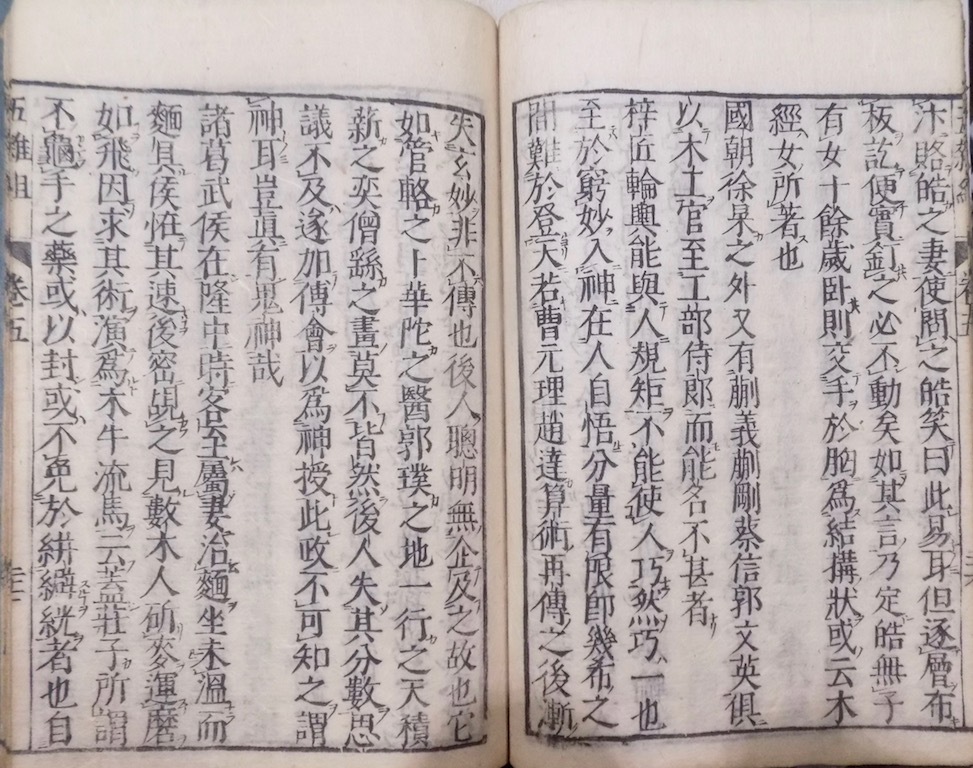 汴賂皓之妻使問之皓笑曰此易耳但逐層布
板訖便實釘之必不動矣如其言乃定皓無子
有女十餘歲卧則交手於胸爲結搆狀或云木
經女所著也
國朝徐杲之外又有蒯義蒯剛蔡信郭文英俱
以木工官至工部侍郎而能名不甚著
梓匠輪輿能與人規矩不能使人巧然巧一也
至於窮妙入神在人自悟分量有限即幾希之
間難於登天若曹元理趙達算術再傳之後漸
失玄妙非不傳也後人聰明無企及之故也它
如管輅之卜華陀之醫郭璞之地一行之天積
薪之奕僧繇之畫莫不皆然後人失其分數思
議不及遂加傳會以爲神授此政不可知之謂
神耳豈真有鬼神哉
諸葛武侯在隆中時客至屬妻治麵坐未溫而
麵具侯恠其速後密覘之見數木人斫麥運磨
如飛因求其術演爲木牛流馬云蓋莊子所謂
不龜手之藥或以封或不免於絣纊絖者也自
五雜組
卷五